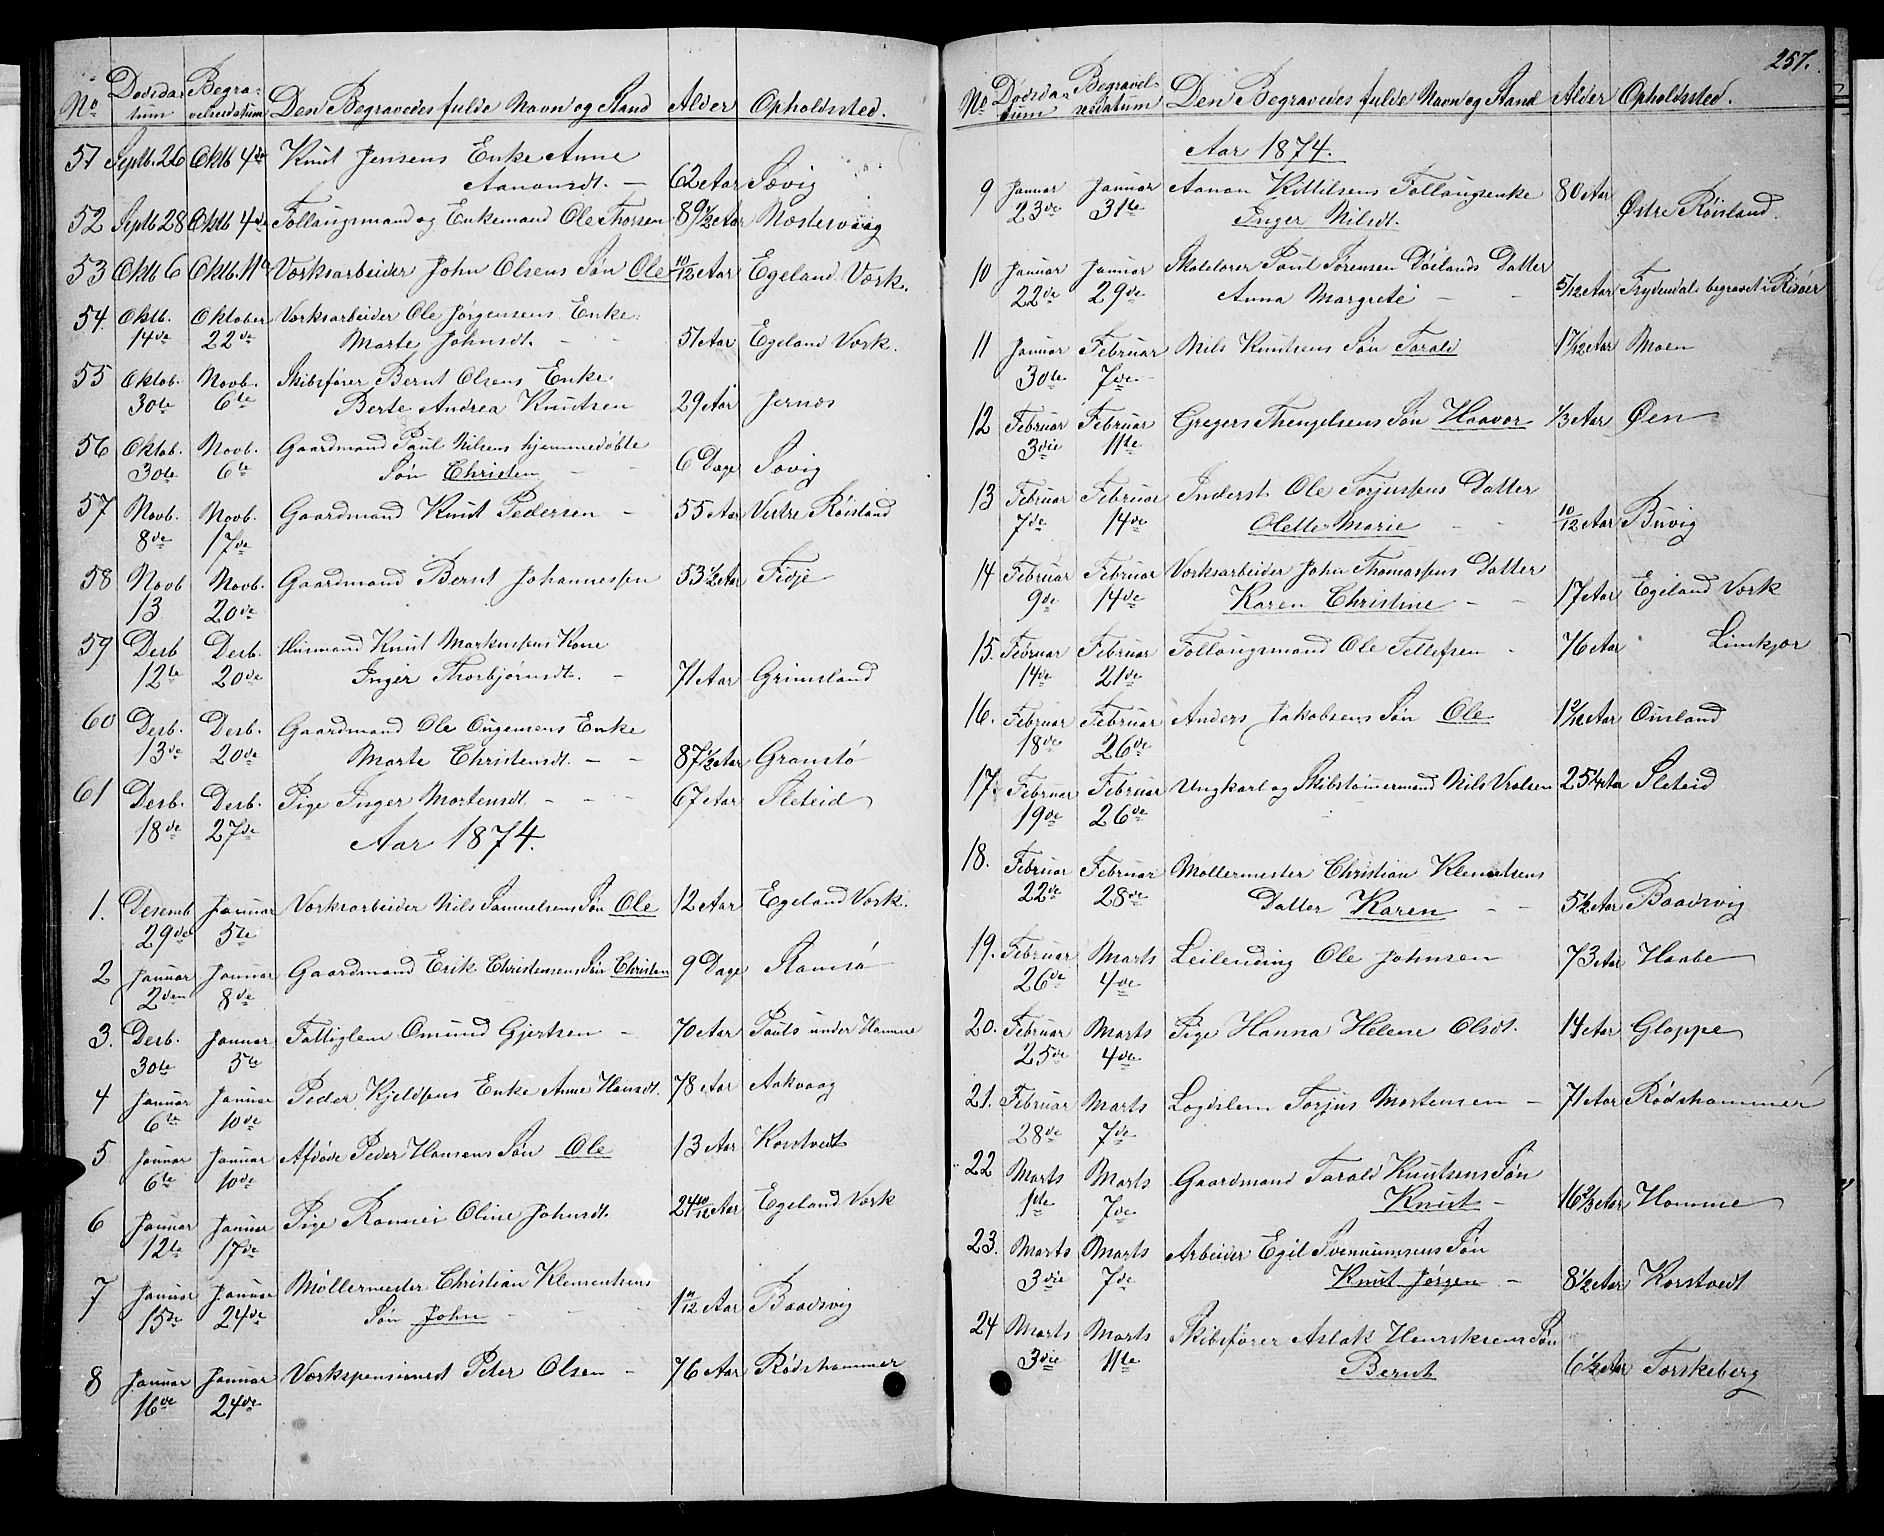 No Dødsda- Begra-
tum velsesdatum Den Begravedes fulde Navn og Stand Alder Opholdssted.
51 Septb. 26 Oktb 4de Knut Jensens Enke Anne
Aanonsdt. — 62 Aar Søvig
52 Septb 28 Oktb 4de Follaugsmand og Enkemand Ole Thorsen 89 1/2 Aar Næstesvaag
53 Oktb 6 Oktb. 11te Værksarbeider John Olsens Søn Ole 10/12 Aar Egeland Værk.
54. Oktb. Oktober Værksarbeider Ole Jørgensens Enke
14de 22de Marte Johnsdt. - - 51 Aar Egeland Værk.
55 Oktob. Novb. Skibsfører Bernt Olsens Enke
30te 6te Berte Andrea Knutsen 29 Aar Jernes
56 Oktob. Novb. Gaardmand Paul Nilsens hjemmedøbte
30te 6te Søn Christen - - 6 Dage Søvig
57 Novb. Novb. Gaardmand Knut Pedersen - 55 Aar Vestre Røisland
8de 17de
58 Novb Novb. Gaardmand Bernt Johannessen 53 1/2 Aar Fidje
13 20de
59 Desb Desb. Husmand Knut Markussens Kone
12te 20de Inger Thorbjørnsdt. - 71 Aar Grimsland
60 Desb. Desb. Gaardmand Ole Ougensens Enke
13de 20de Marte Christensdt. - - 87 1/2 Aar Gramstø
61 Desb. Desb. Pige Inger Mortensdt. - - - 67 Aar Sleteid
18de 27de Aar 1874.
1. Desemb Januar Værksarbeider Nils Samuelsens Søn Ole 12 Aar Egeland Værk.
29de 5te
2 Januar Januar Gaardmand Erik Christensens Søn Christen 9 Dage Stamsø
2den 8de
3. Desb. Januar Fattiglem Omund Gjertsen - 70 Aar Pauts under Hamme
30te 5te
4 Januar Januar Peder Kjeldsens Enke Anne Hansdt. 78 Aar Aakvaag
6te 10de
5 Januar Januar Afdøde Peder Hansens Søn Ole 13 Aar Korstvedt
6te 10de
6 Januar Januar Pige Rønnei Oline Johnsdt. 24 10/12 Aar Egeland Værk
12te 17de
7 Januar Januar Møllermester Christian Klemmetsens
15de 24de Søn John - - - 1 11/12 Aar Baadsvig
8 Januar Januar Værkspensionist Peter Olsen - 76 Aar Rødshammer
16de 24de
257.
No Dødsda- Begravel-
tum sesdatum Den Begravedes fulde Navn og Stand Alder Opholdssted.
Aar 1874.
9 Januar Januar Aanon Kittilsens Follaugsenke 80 Aar
23de 31te Inger Nilsdt. Østre Røisland.
10 Januar Januar Skolelærer Paul Sørensen Døilands Datter
22de 29de Anna Margrete - - 5/12 Aar Frydendal begravet i Risøer
11 Januar Februar Nils Knutsens Søn Tarald 1 11/12 Aar Moen
30te 7de
12 Februar Februar Gregers Thengelsens Søn Haavor 1/3 Aar Øen
3die 11te
13 Februar Februar Inderst Ole Torjussens Datter
7de 14de Olette Marie - - 10/12 Aar Buvig
14 Februar Februar Værksarbeider John Thomassens Datter
9de 14de Karen Christine - - 17 Aar Egeland Værk
15. Februar Februar Follaugsmand Ole Tellefsen - 76 Aar Limkjær
14de 21de
16. Februar Februar Anders Jakobsens Søn Ole 1 9/12 Aar Ousland
18de 26de
17. Februar Februar Ungkarl og Skibstømmermand Nils Vrolsen 25 1/4 Aar Sleteid
19de 26de
18. Februar Februar Møllermester Christian Klemmetsens
22de 28de Datter Karen - - 5 1/2 Aar Baadsvig
19. Februar Marts Leilending Ole Johnsen 73 Aar Haabe
26de 4de
20. Februar Marts Pige Hanna Helene Olsdt. 14 Aar Gloppe
25de 4de
21. Februar Marts Lægdslem Torjus Mortensen - 71 Aar Rødshammer
28de 7de
22 Marts Marts Gaardmand Tarald Knutsens Søn
1ste 7de Knut - 16 2/3 Aar Homme
23. Marts Marts Arbeider Egil Svennumsens Søn
3die 7de Knut Jørgen - 8 1/2 Aar Korstvedt
24 Marts Marts Skibsfører Aslak Henriksens Søn
3die 11te Bernt 6 1/2 Aar Torskeberg